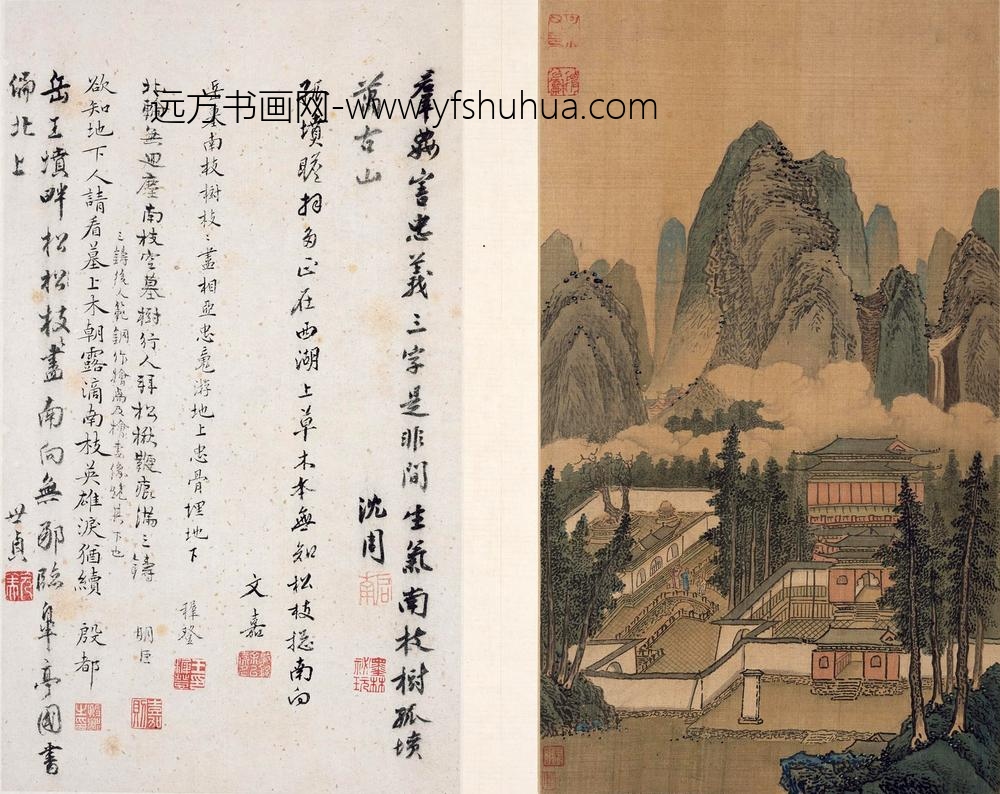 羣姦害忠義三字是非間生氣南枝樹孤墳
萬古山
沈周
墳瞻拜多正在西湖上草木本無知松枝總南向
文嘉
岳墓南枝樹枝〻盡相亞忠魂游地上忠骨埋地下
穉登
北轅無迴塵南枝空墓樹行人拜松楸鞭痕滿三鑄
三鑄後人範銅作檜卨及檜妻像跪其下也
欲知地下人請看墓上木朝露滴南枝英雄淚猶續
殷都
岳王墳畔松松枝盡南向無那臨皋亭圖書
偏北上
世貞
远方书画网-www.yfshuhua.com